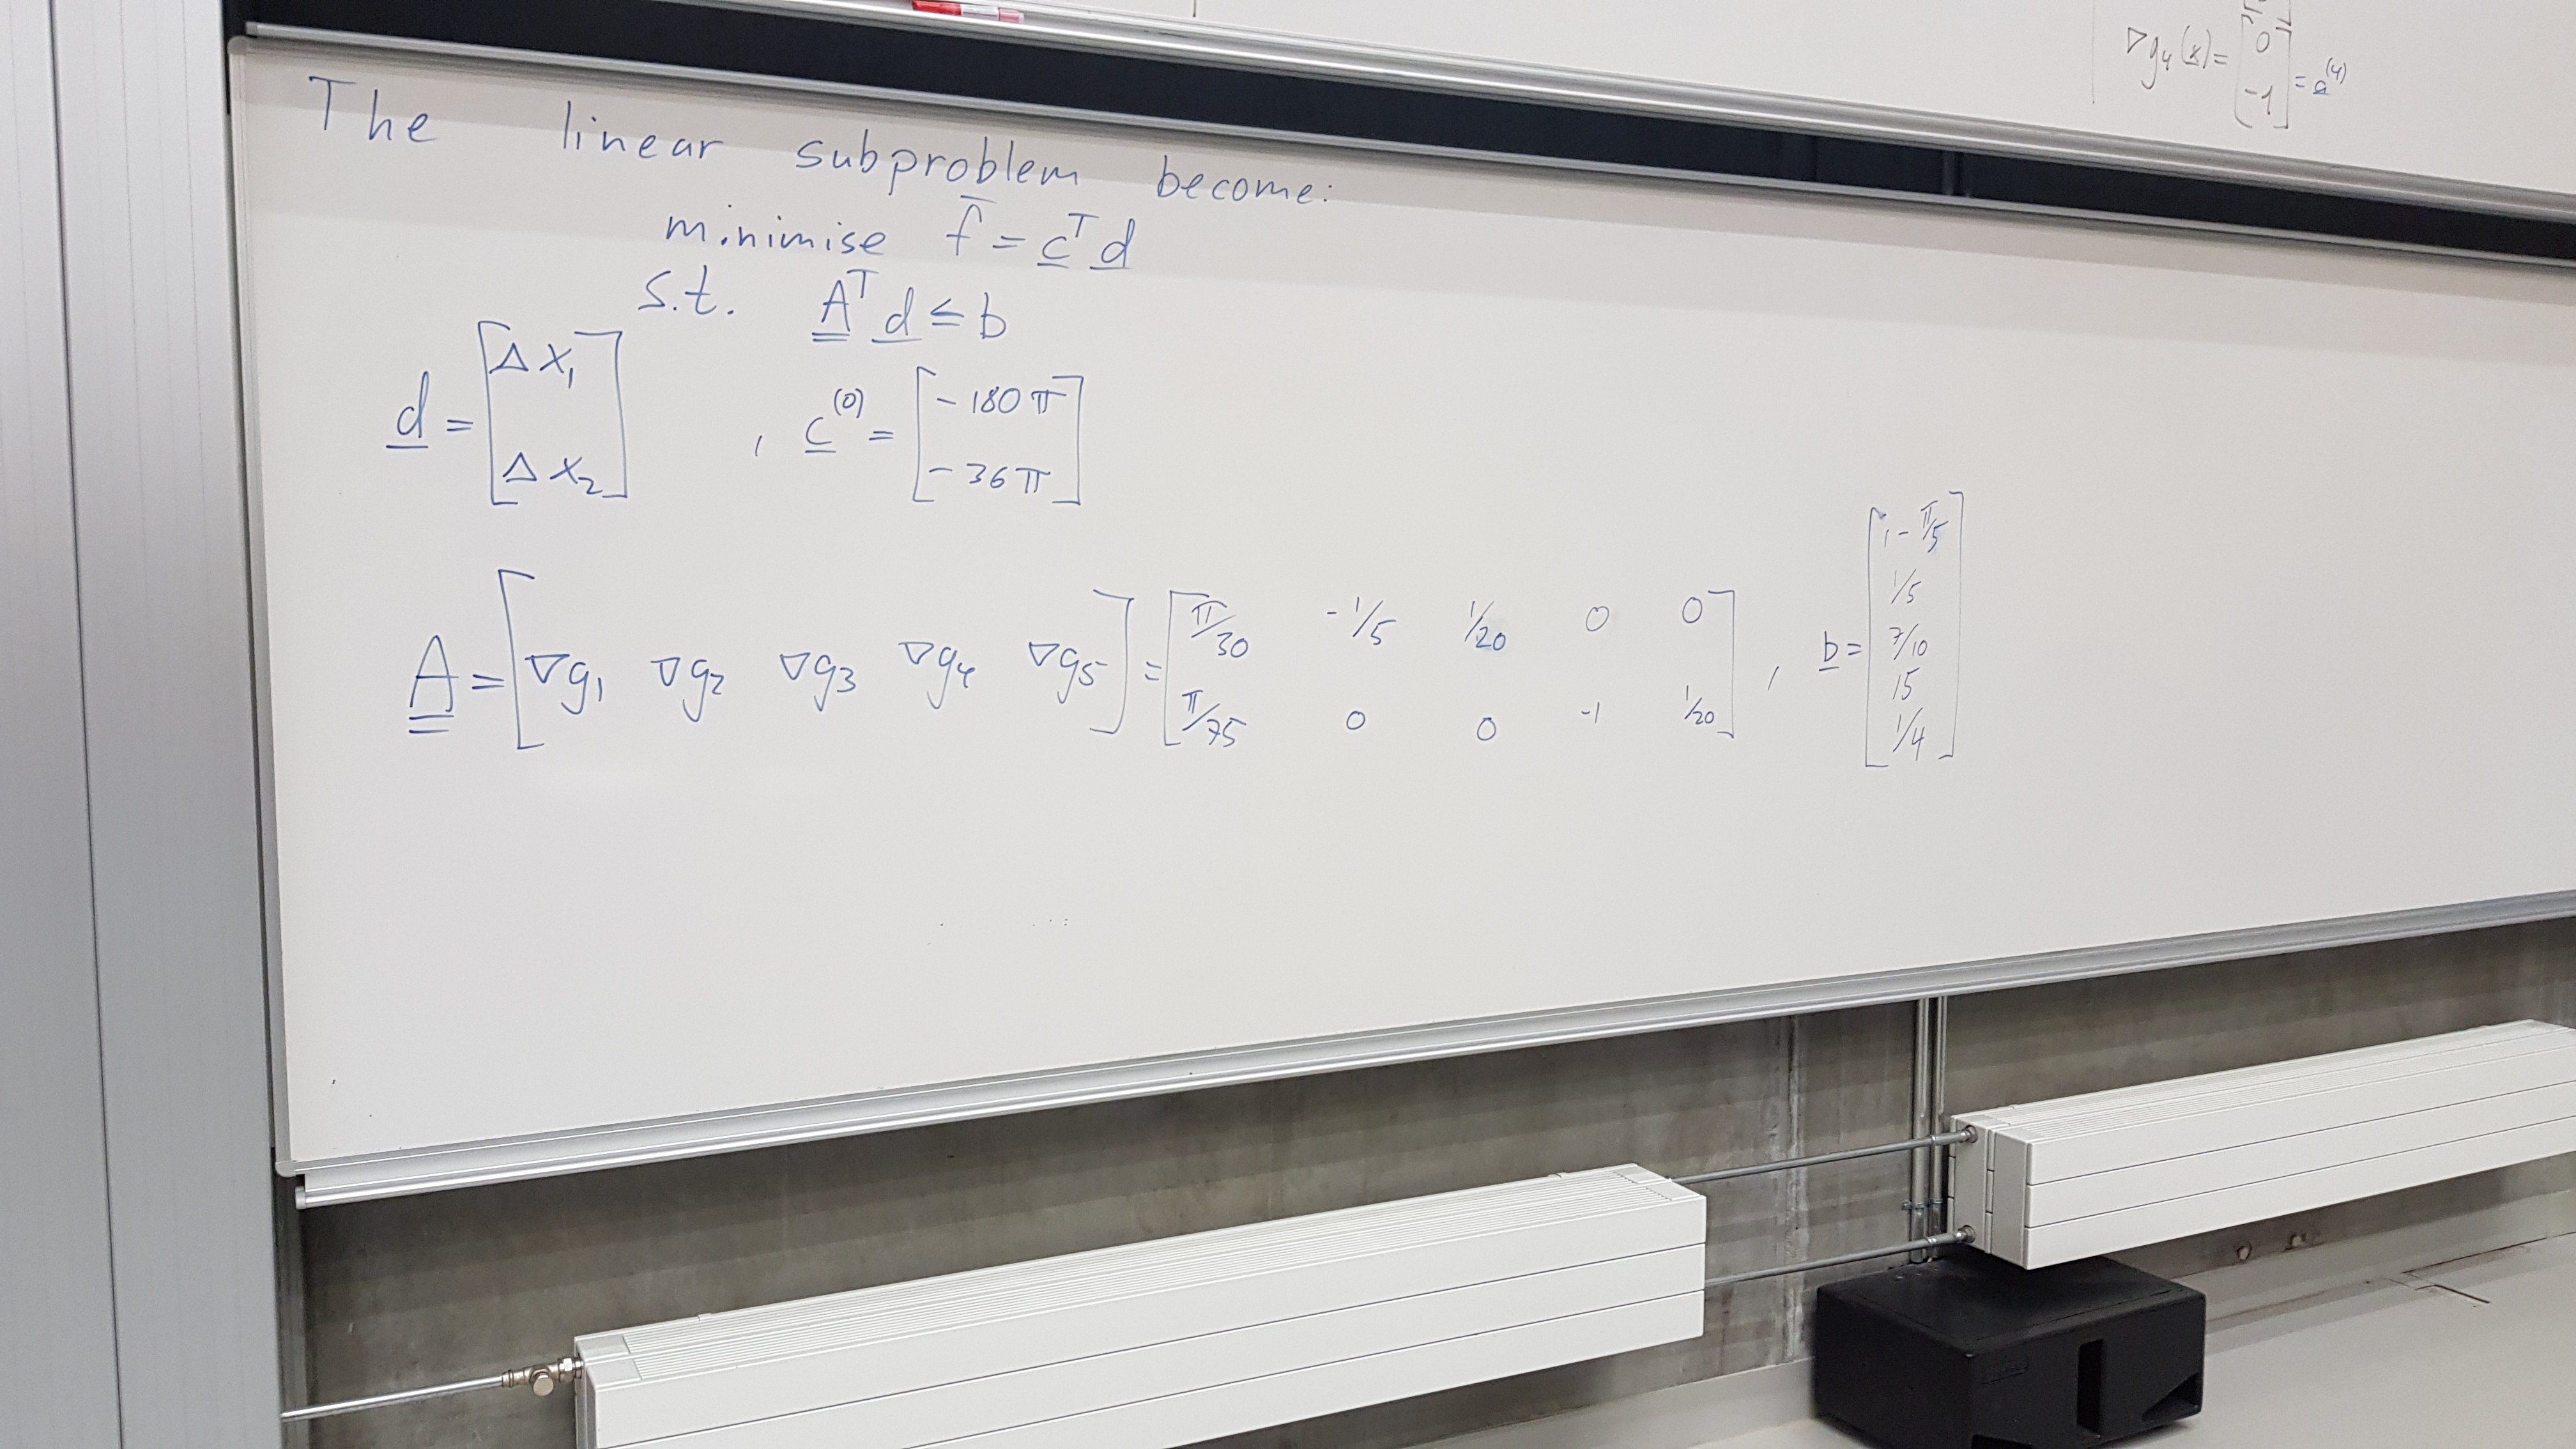 The linear subproblem become:
minimise f̄ = c̲ᵀ d̲
s.t. A̲ᵀ d̲ ≤ b
d̲ = [Δx₁ Δx₂], c̲⁽⁰⁾ = [-180π -36π]
A̲ = [∇g₁ ∇g₂ ∇g₃ ∇g₄ ∇g₅] = [π/30 -1/5 1/20 0 0
π/75 0 0 -1 1/20], b̲ = [1-π/5 1/5 7/10 15 1/4]
∇g₄(x̲) = [0 -1] = a̲⁽⁴⁾